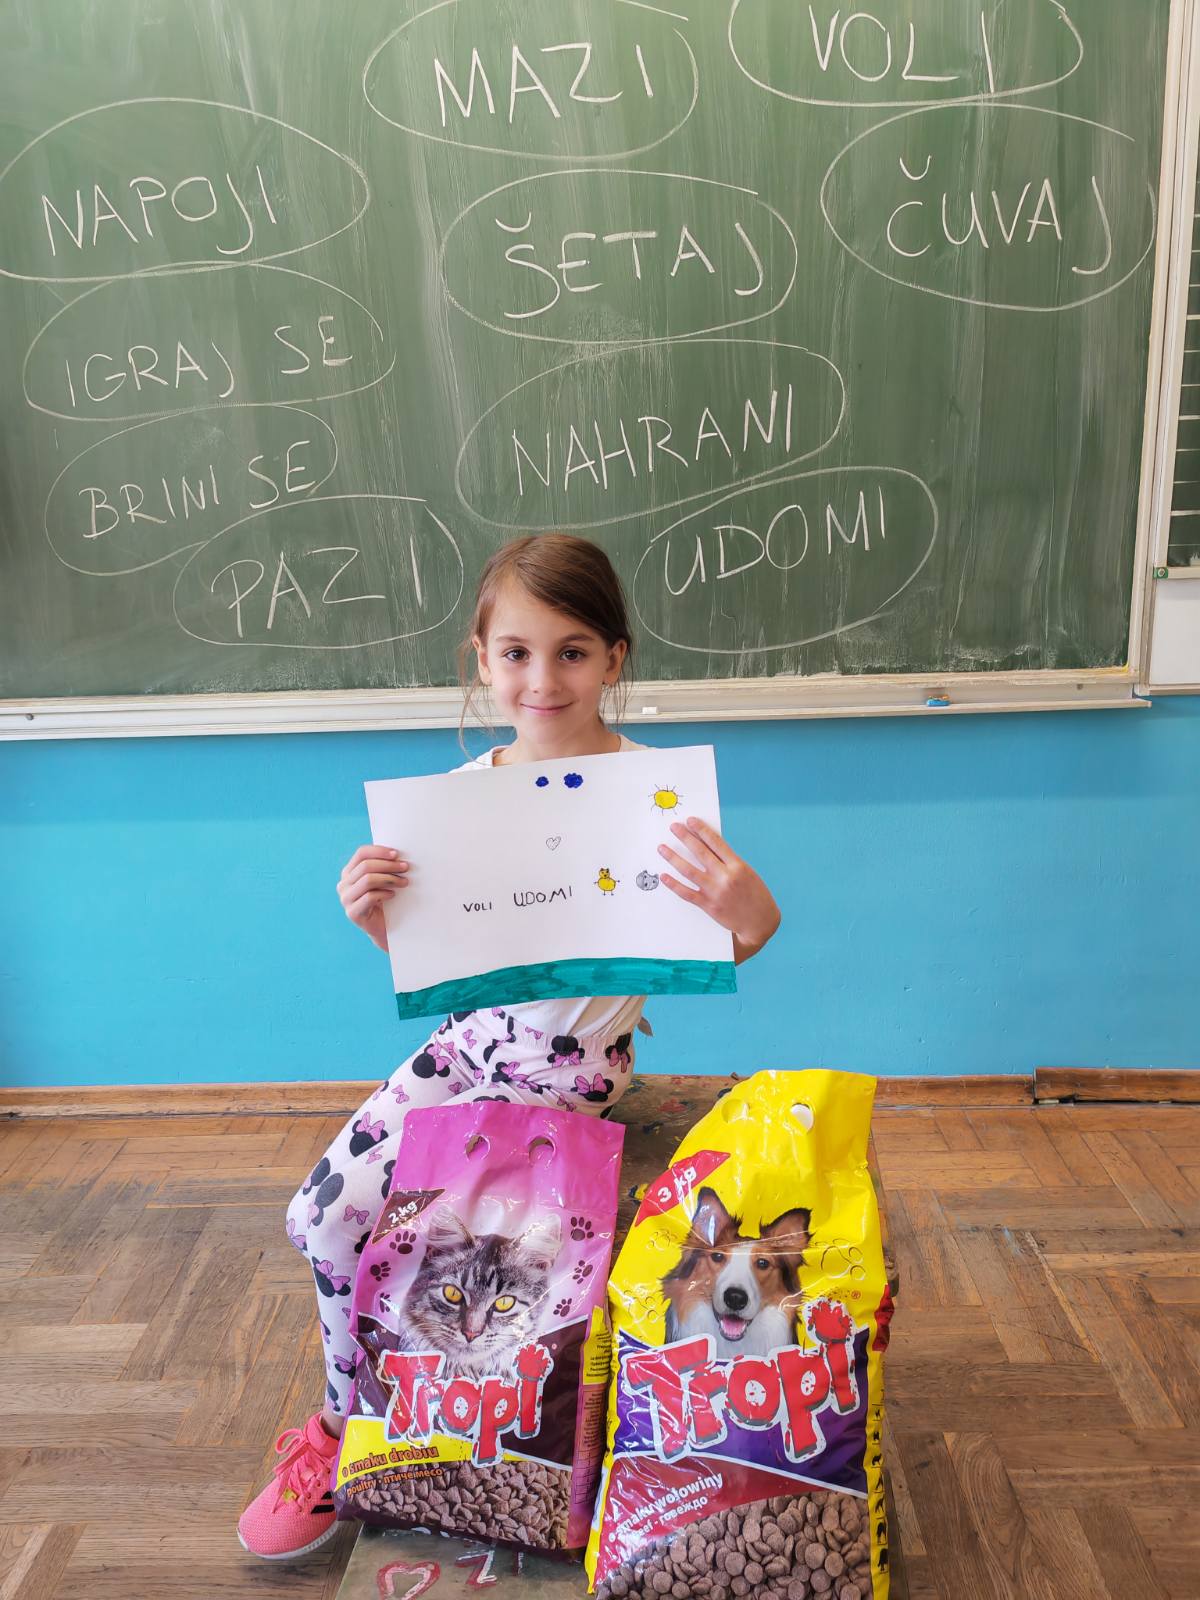 MAZI
VOLI
NAPOJI
ŠETAJ
ČUVAJ
IGRAJ SE
NAHRANI
BRINI SE
UDOMI
PAZI
VOLI UDOMI
2 kg
Tropi
o smaku drobiu
poultry - птиче месо
3 kg
Tropi
o smaku wołowiny
beef - говеждо